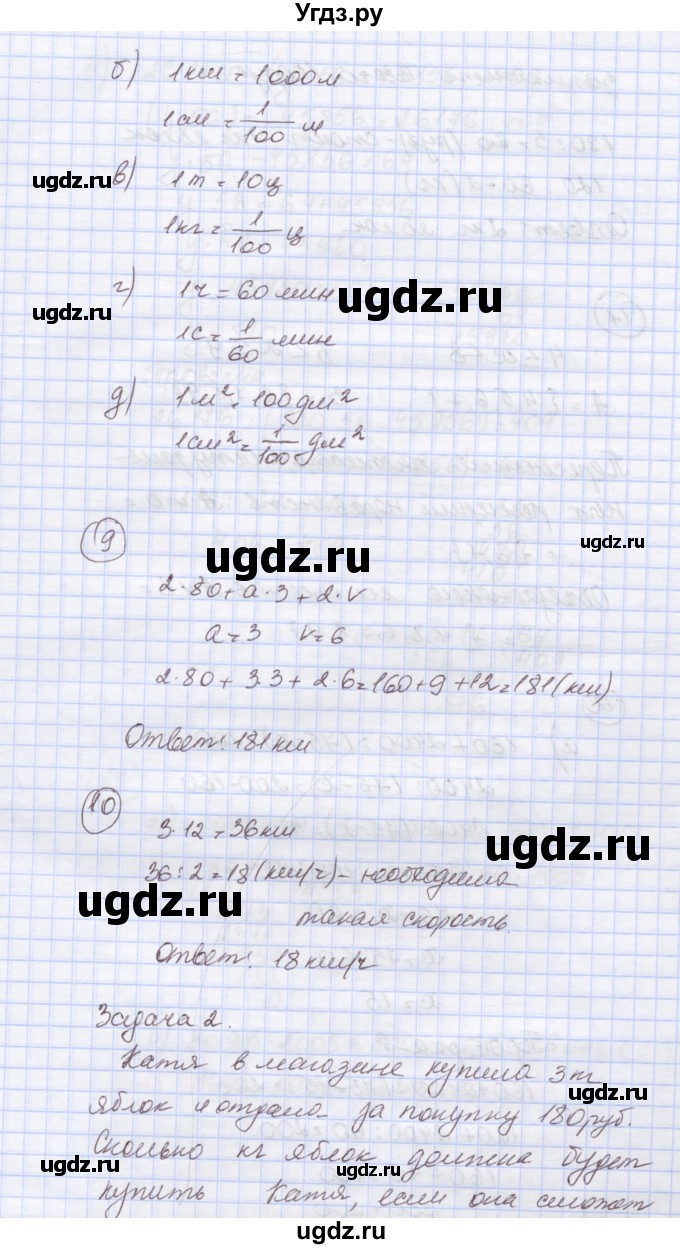 Угдз.ру
б) 1км = 1000м
1см = 1/100 м
ugdz.ru
в) 1т = 10ц
1кг = 1/100 ц
ugdz.ru
г) 1ч = 60 мин
ugdz.ru
1с = 1/60 мин
д) 1м² = 100дм²
1см² = 1/100 дм²
9
ugdz.ru
ugdz.ru
2·80+а·3+2·v
а=3 v=6
2·80+3·3+2·6=160+9+12=181(км)
Ответ: 181км
10
3·12=36км
ugdz.ru
36:2=18(км/ч)- необходима
ugdz.ru
такая скорость.
Ответ: 18км/ч
Задача 2.
Катя в магазине купила 3кг
яблок и отдала за покупку 180руб.
Сколько кг яблок должна будет
ugdz.ru
ugdz.ru
купить Катя, если она сможет
ugdz.ru
ugdz.ru